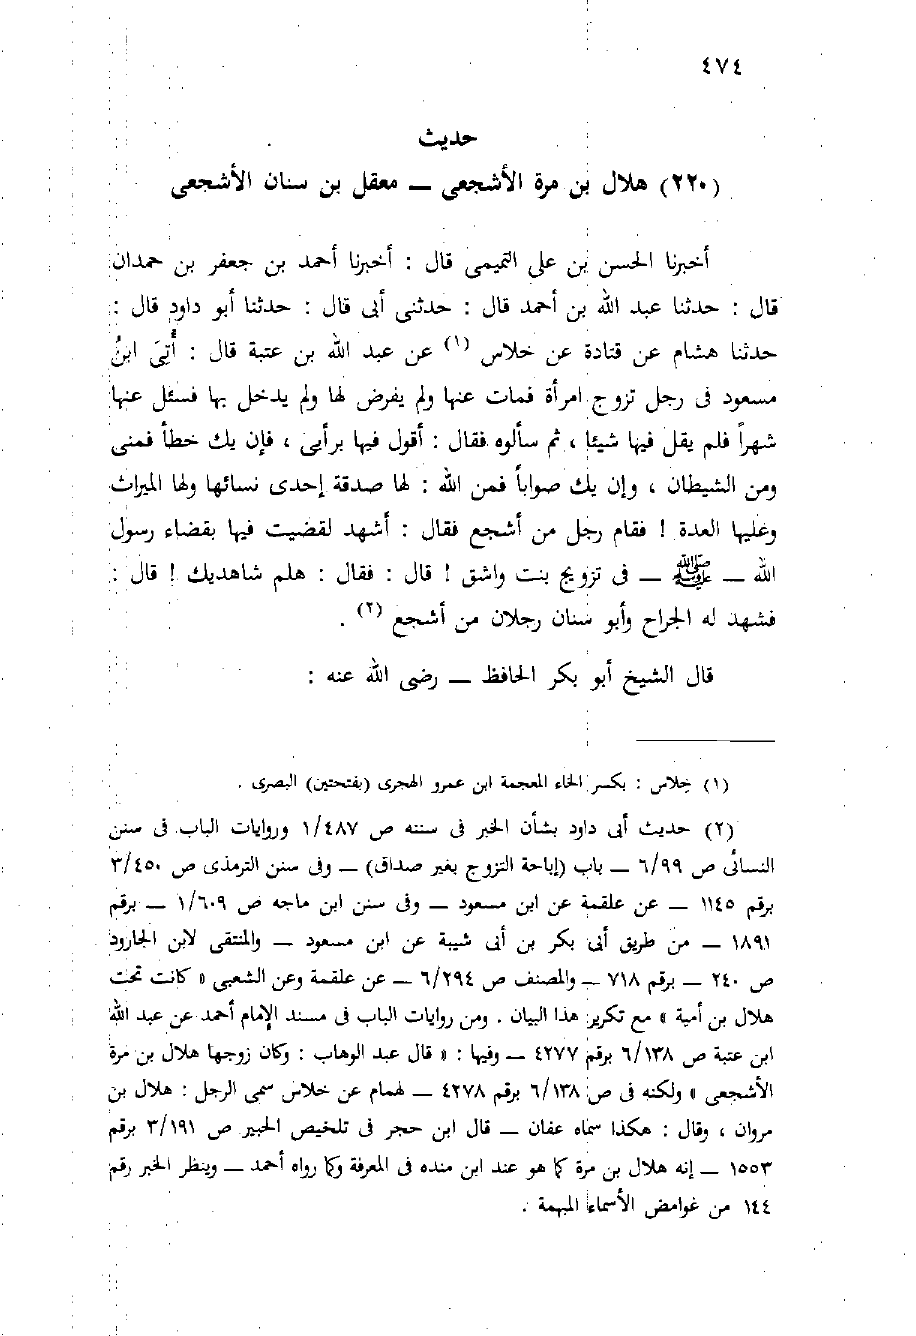 ٤٧٤
حديث
(٢٢٠) هلال بن مرة الأشجعى ــ معقل بن سنان الأشجعى
أخبرنا الحسن بن على التميمى قال : أخبرنا أحمد بن جعفر بن حمدان
قال : حدثنا عبد الله بن أحمد قال : حدثنى أبى قال : حدثنا أبو داود قال :
حدثنا هشام عن قتادة عن خلاس (١) عن عبد الله بن عتبة قال : أُتِىَ ابنُ
مسعود فى رجل تزوج امرأة فمات عنها ولم يفرض لها ولم يدخل بها فسئل عنها
شهراً فلم يقل فيها شيئا ، ثم سألوه فقال : أقول فيها برأيى ، فإن يك خطأ فمنى
ومن الشيطان ، وإن يك صواباً فمن الله : لها صدقة إحدى نسائها ولها الميراث
وعليها العدة ! فقام رجل من أشجع فقال : أشهد لقضيت فيها بقضاء رسول
الله ــ ﷺ ــ فى تزويج بنت واشق ! قال : فقال : هلم شاهديك ! قال :
فشهد له الجراح وأبو سنان رجلان من أشجع (٢) .
قال الشيخ أبو بكر الحافظ ــ رضى الله عنه :
(١) خلاس : بكسر الخاء المعجمة ابن عمرو الهجرى (بفتحتين) البصرى .
(٢) حديث أبى داود بشأن الخبر فى سننه ص ١/٤٨٧ وروايات الباب فى سنن
النسائى ص ٦/٩٩ ــ باب (إباحة التزوج بغير صداق) ــ وفى سنن الترمذى ص ٣/٤٥٠
برقم ١١٤٥ ــ عن علقمة عن ابن مسعود ــ وفى سنن ابن ماجه ص ١/٦٠٩ ــ برقم
١٨٩١ ــ من طريق أبى بكر بن أبى شيبة عن ابن مسعود ــ والمنتقى لابن الجارود
ص ٢٤٠ ــ برقم ٧١٨ ــ والمصنف ص ٦/٢٩٤ ــ عن علقمة وعن الشعبى « كانت تحت
هلال بن أمية » مع تكرير هذا البيان . ومن روايات الباب فى مسند الإمام أحمد عن عبد الله
ابن عتبة ص ٦/١٣٨ برقم ٤٢٧٧ ــ وفيها : « قال عبد الوهاب : وكان زوجها هلال بن مرة
الأشجعى » ولكنه فى ص ٦/١٣٨ برقم ٤٢٧٨ ــ لهمام عن خلاس سمى الرجل : هلال بن
مروان ، وقال : هكذا سماه عفان ــ قال ابن حجر فى تلخيص الحبير ص ٣/١٩١ برقم
١٥٥٣ ــ إنه هلال بن مرة كما هو عند ابن منده فى المعرفة وكما رواه أحمد ــ وينظر الخبر رقم
١٤٤ من غوامض الأسماء المبهمة .